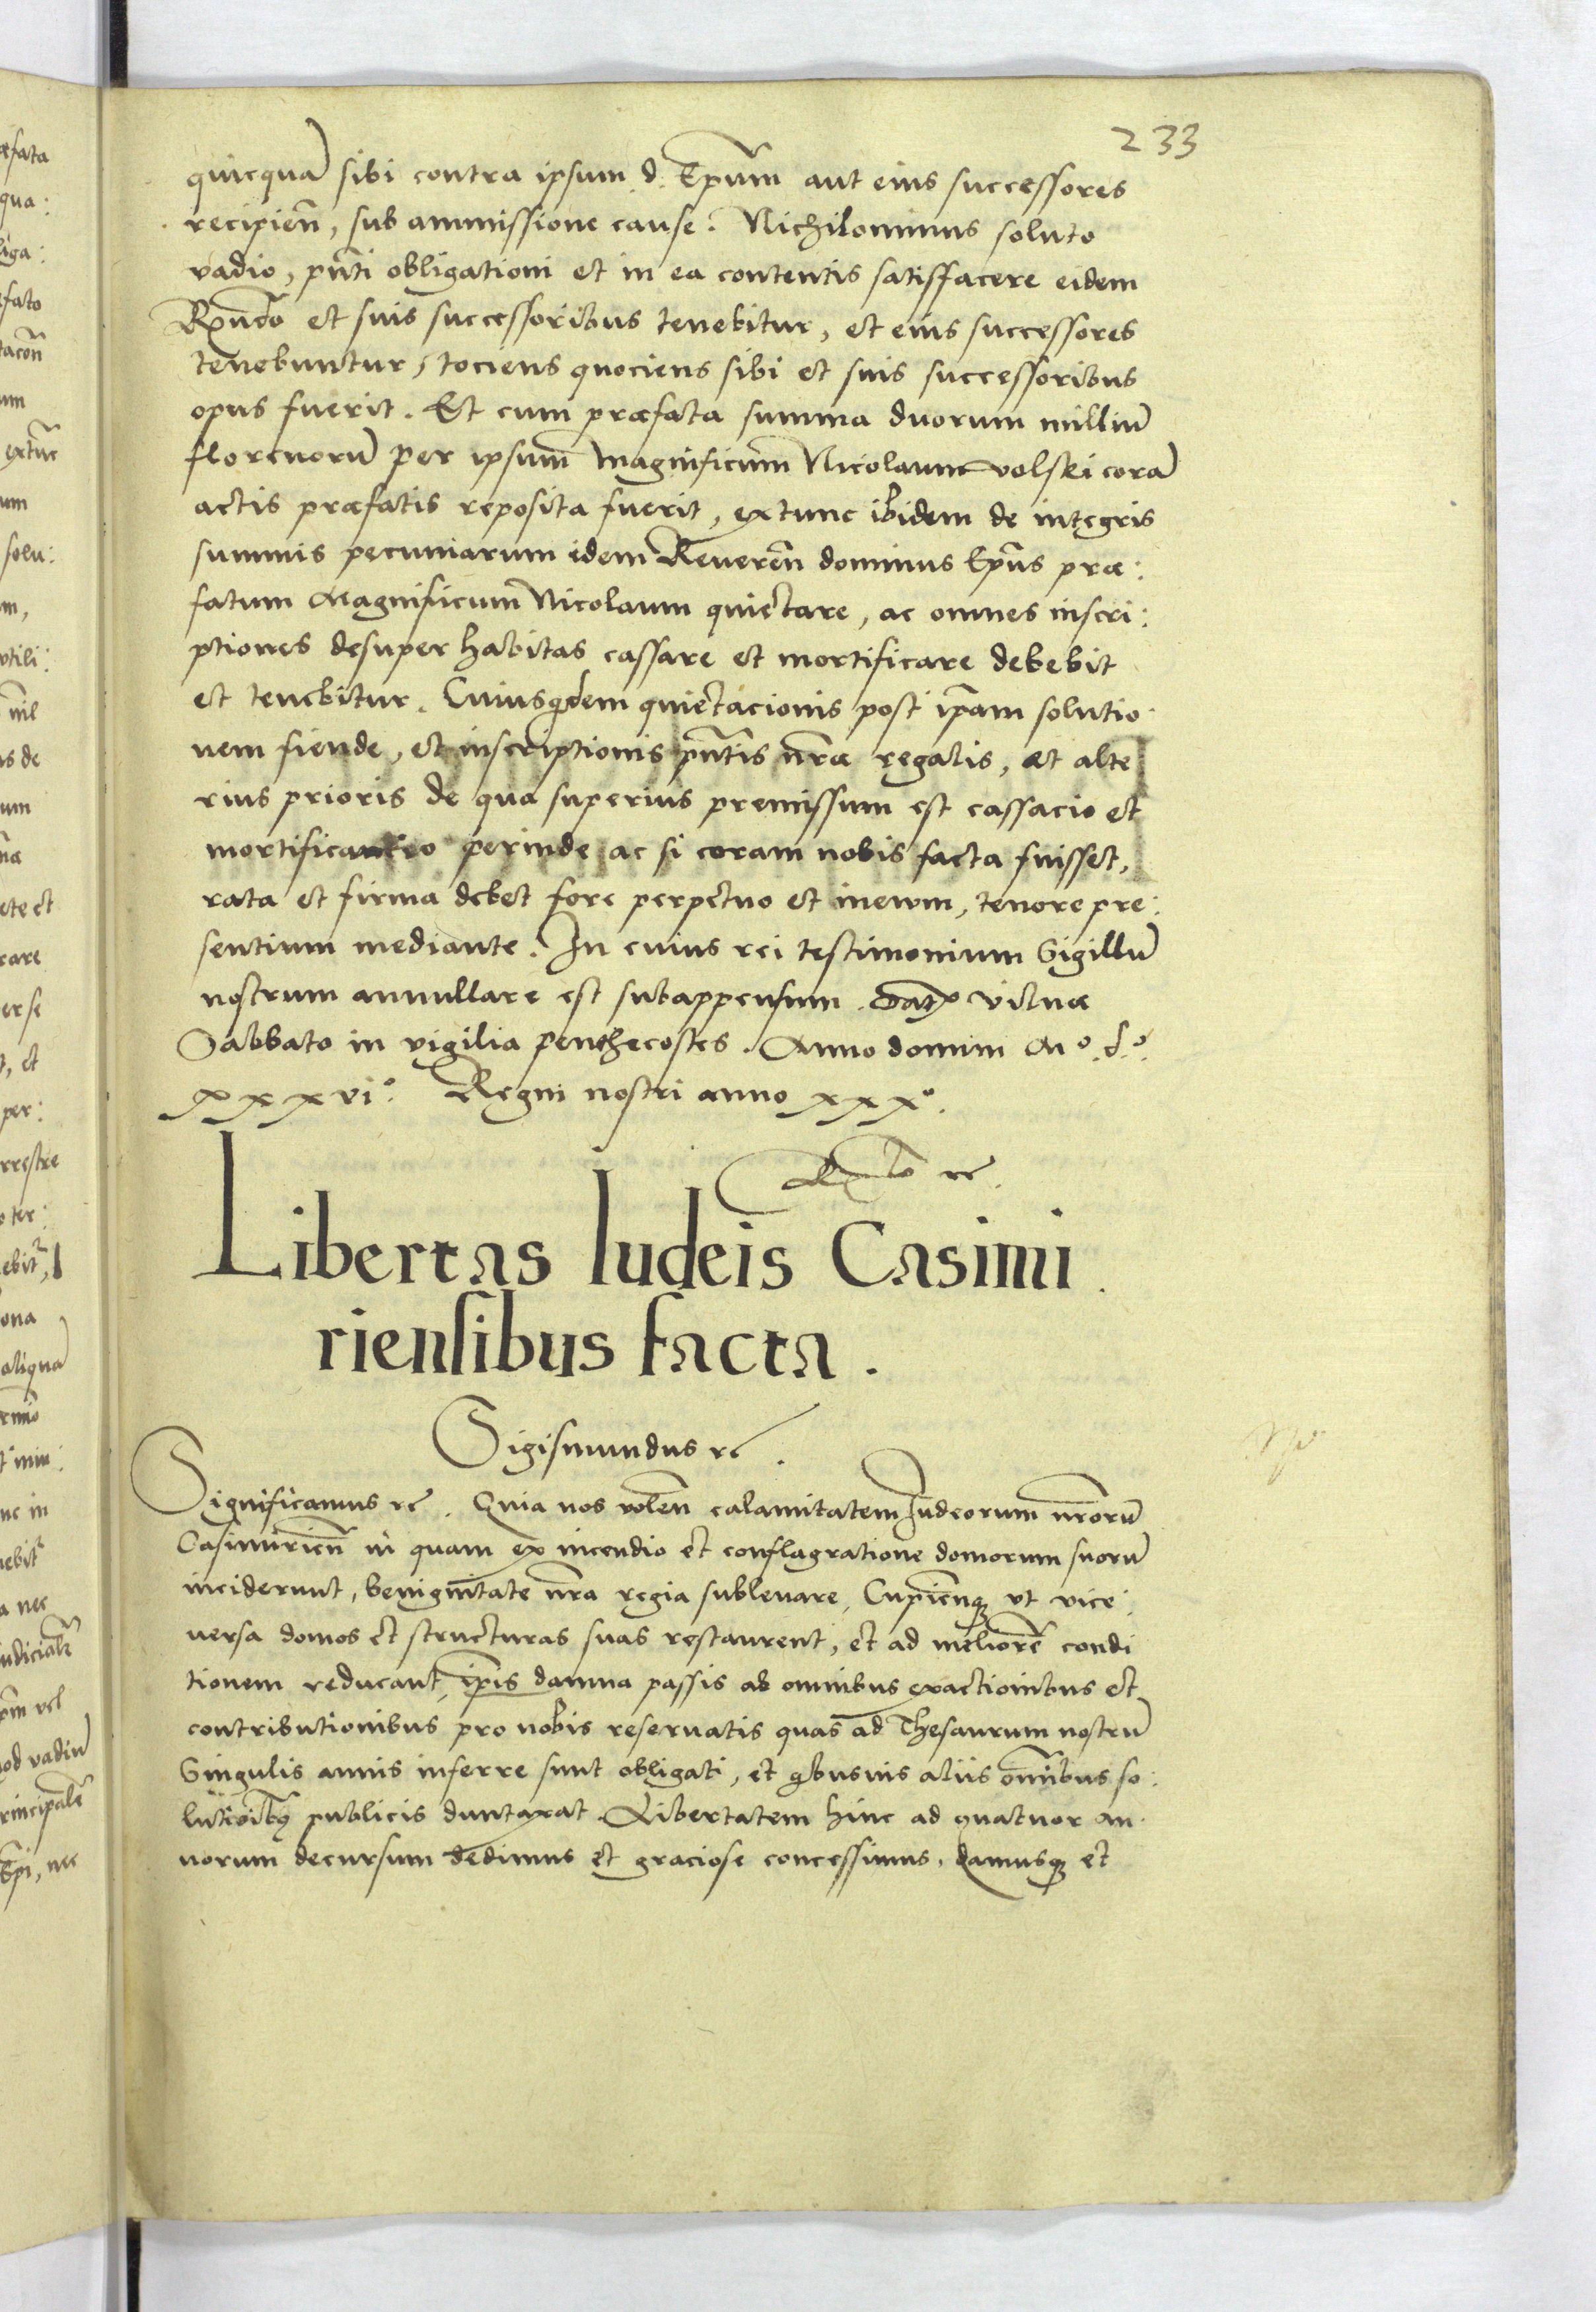 233
quicquā sibi contra ipsum d. Ep̄um aut eius successores
recipieñ, sub ammissione cause. Nichilominus soluto
vadio, pn̄ti obligationi et in ea contentis satisffacere eidem
Rn̄do et suis successoribus tenebitur, et eius successores
tenebuntur, tociens quociens sibi et suis successoribus
opus fuerit. Et cum præfata summa duorum milliū
florenorū per ipsum magnificum Nicolaum volski corā
actis præfatis reposita fuerit, extunc ibidem de integris
summis pecuniarum idem Reuereñ dominus Ep̄us præ:
fatum Magnificum Nicolaum quiectare, ac omnes inscri:
ptiones desuper habitas cassare et mortificare debebit
et tenebitur. Cuiusqdem quiectacionis post ip̄am solutio
nem fiende, et inscriptionis pn̄tis nr̄æ regalis, et alte
rius prioris de qua superius premissum est cassacio et
mortificatio perinde ac si coram nobis facta fuisset,
rata et firma debet fore perpetuo et ineum, tenore pre:
sentium mediante. In cuius rei testimonium Sigillū
nostrum annullare est subappensum. Dat Vilnæ
Sabbato in vigilia penthecostes. Anno domini Mo. do.
xxxvi°. Regni nostri anno xxx°.
Libertas Iudeis Casimi
riensibus facta.
Sigismundus rc.
Significamus rc. Quia nos voleñ calamitatem Iudeorum nr̄orū
Casimirieñ in quam ex incendio et conflagratione domorum suorū
inciderunt, benignitate nr̄a regia subleuare, Cupieñq; vt vice
versa domos et structuras suas restaurent, et ad meliorē condi
tionem reducant, ip̄is damna passis ab omnibus exactionibus et
contributionibus pro nobis reseruatis quas ad Thesaurum nostrū
Singulis annis inferre sunt obligati, et qbusuis aliis om̄ibus so:
lutioībq publicis duntaxat. Libertatem hinc ad quatuor an
norum decursum dedimus et graciose concessimus, damusq; et